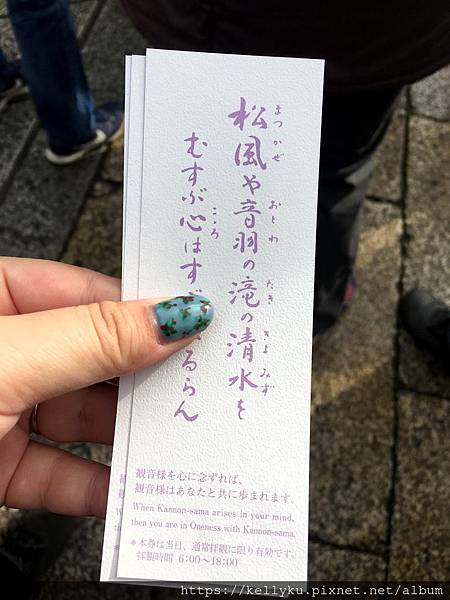 松風や音羽の滝の清水を
まつかぜ
おとわ
たき
きよみず
むすぶ心はすゞ
るらん
こころ
観音様を心に念ずれば、
観音様はあなたと共に歩まれます。
When Kannon-sama arises in your mind,
then you are in Oneness with Kannon-sama.
＊本券は当日、通常拝観に限り有効です。
拝観時間 6:00〜18:00
https://kellyku.pixnet.net/album